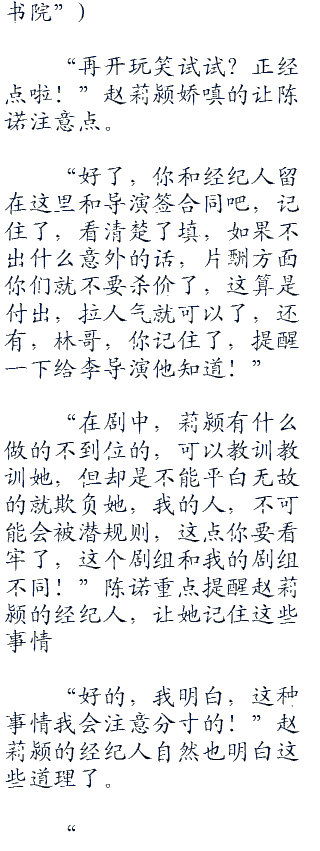 书院”)
“再开玩笑试试？正经
点啦！”赵莉颖娇嗔的让陈
诺注意点。
“好了，你和经纪人留
在这里和导演签合同吧，记
住了，看清楚了填，如果不
出什么意外的话，片酬方面
你们就不要杀价了，这算是
付出，拉人气就可以了，还
有，林哥，你记住了，提醒
一下给李导演他知道！”
“在剧中，莉颖有什么
做的不到位的，可以教训教
训她，但却是不能平白无故
的就欺负她，我的人，不可
能会被潜规则，这点你要看
牢了，这个剧组和我的剧组
不同！”陈诺重点提醒赵莉
颖的经纪人，让她记住这些
事情
“好的，我明白，这种
事情我会注意分寸的！”赵
莉颖的经纪人自然也明白这
些道理了。
“